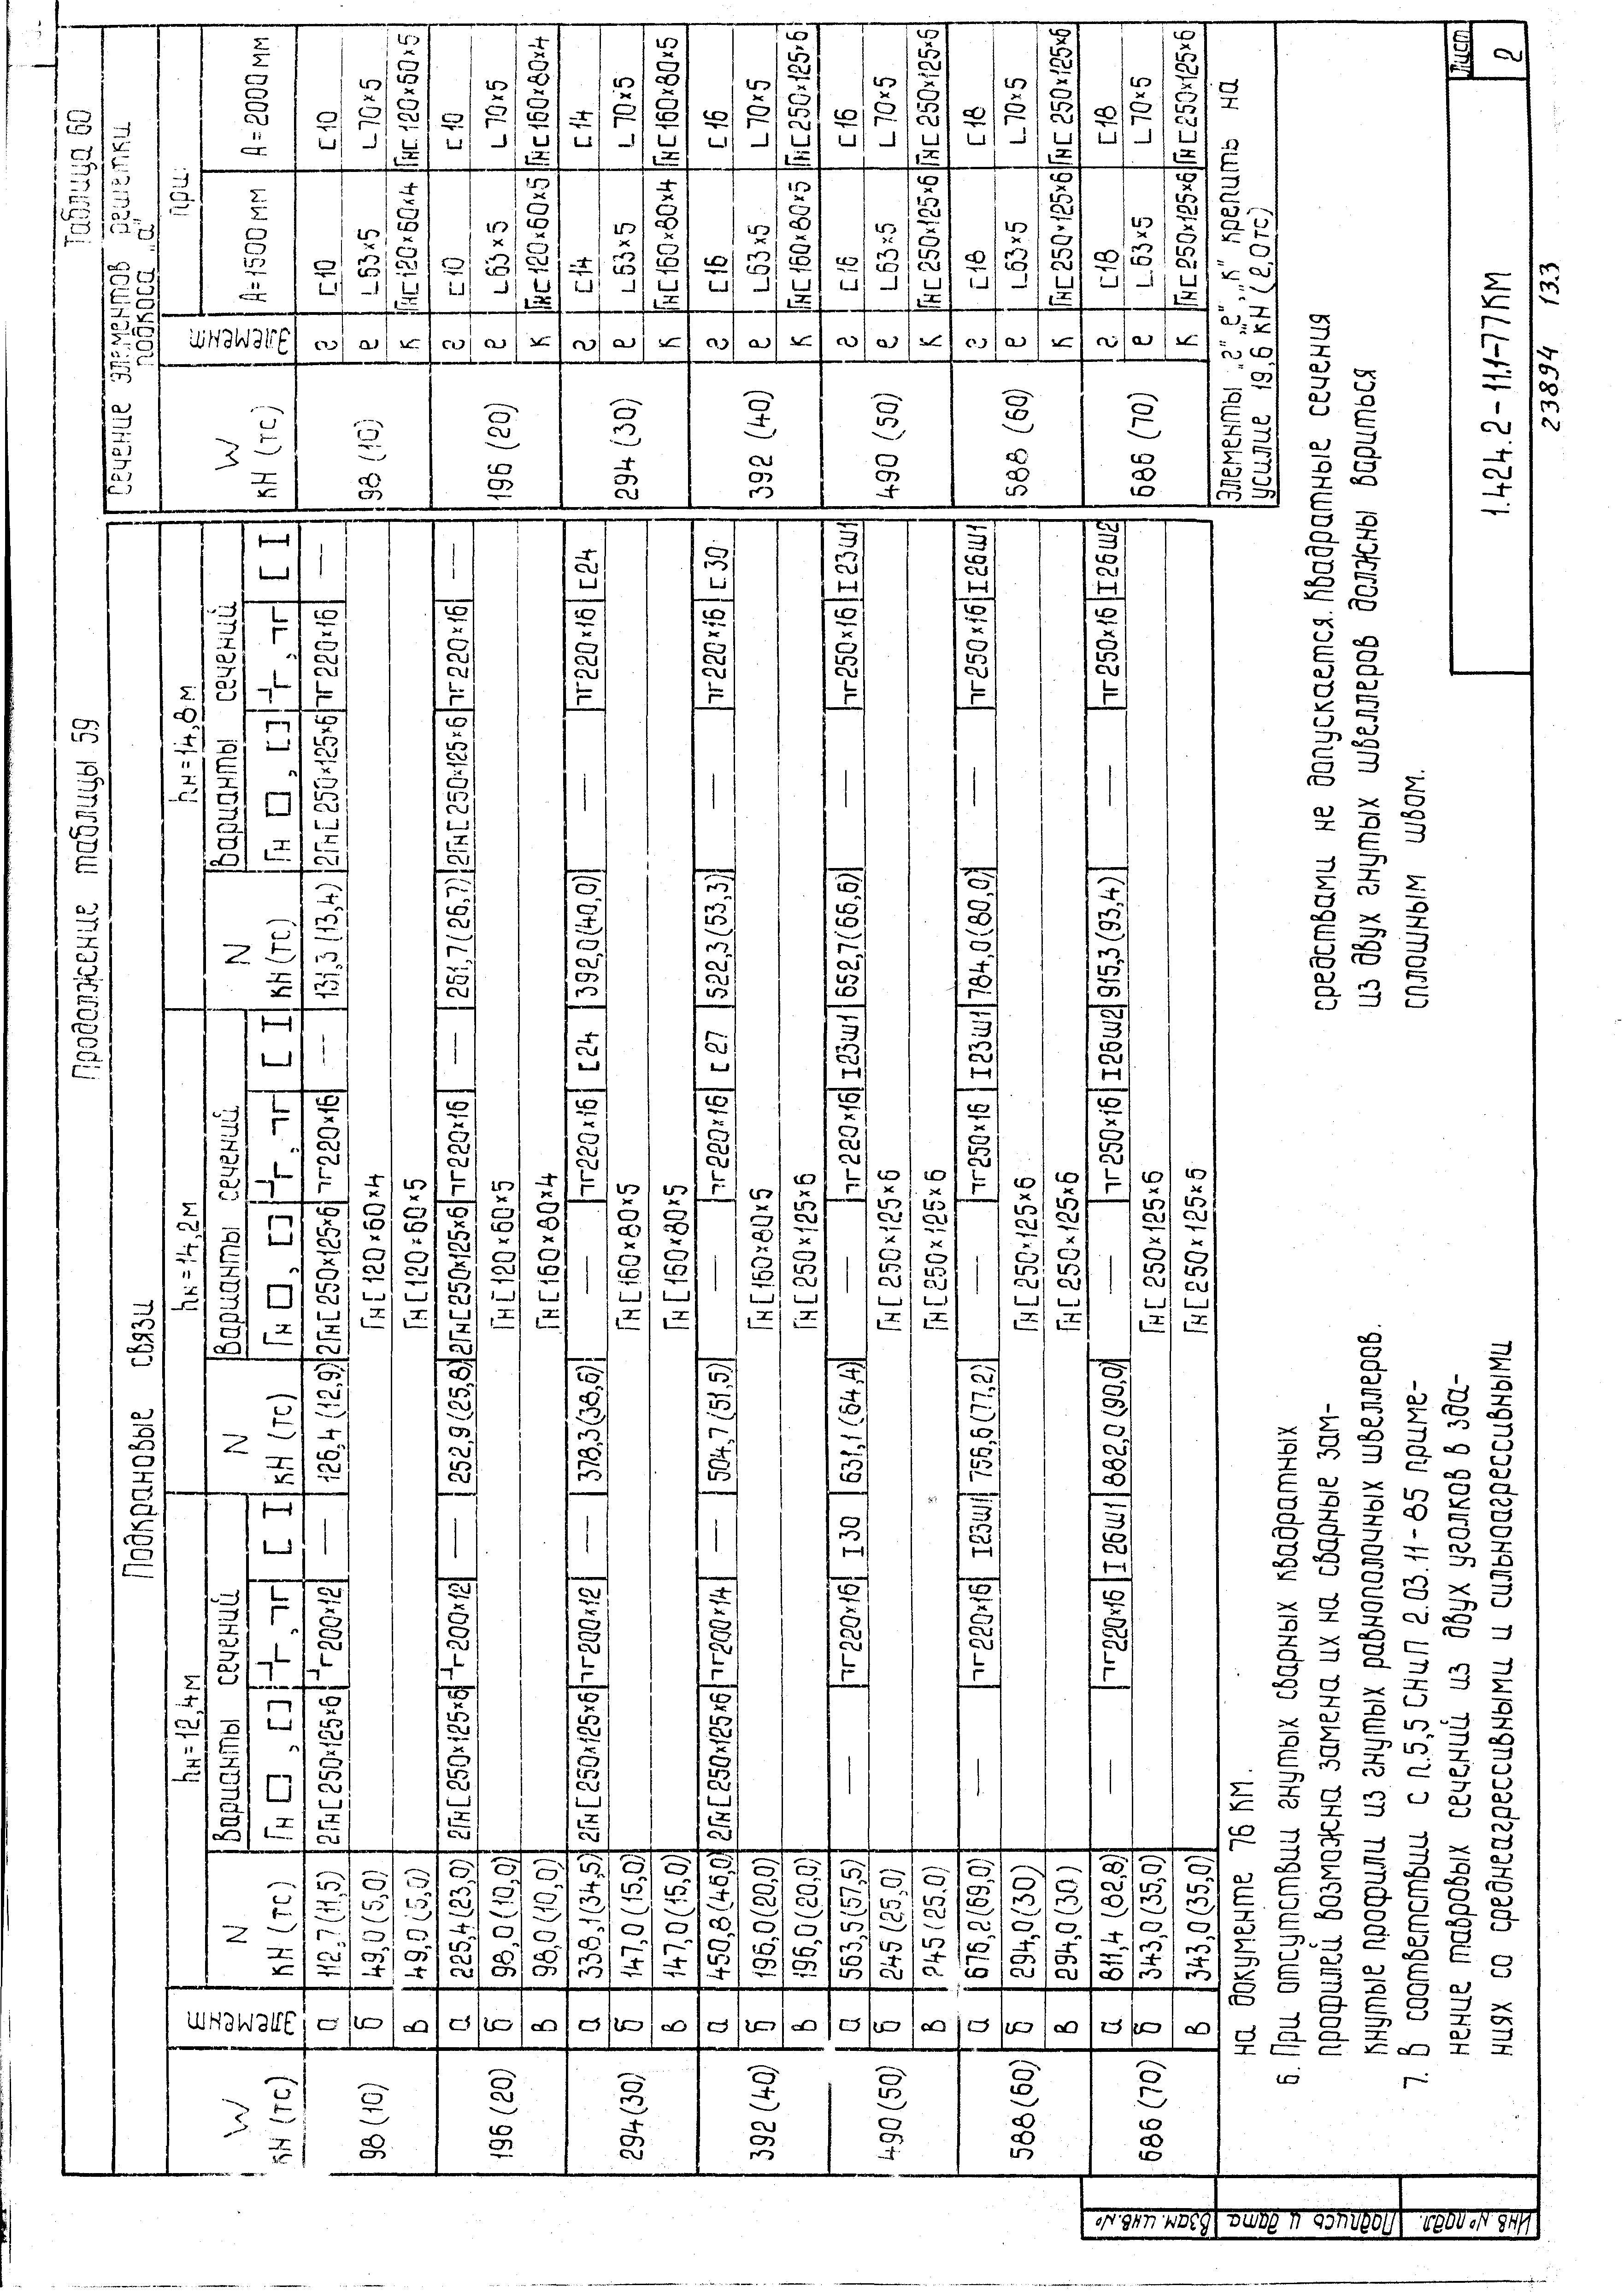 Продолжение таблицы 59
Таблица 60
Подкрановые связи
W кН (тс) | Элемент | hн=12,4м | hк=14,2м | hн=14,8м
N кН (тс) | Варианты сечений | N кН (тс) | Варианты сечений | N кН (тс) | Варианты сечений
Гн □, [] | ⅃Г, ⅂Г | [ I | Гн □, [] | ⅃Г, ⅂Г | [ I | Гн □, [] | ⅃Г, ⅂Г | [ I
98 (10) | а | 112,7 (11,5) | 2Гн[250×125×6 | ⅃Г200×12 | — | 126,4 (12,9) | 2Гн[250×125×6 | ⅂Г220×16 | — | 131,3 (13,4) | 2Гн[250×125×6 | ⅂Г220×16 | —
б | 49,0 (5,0) | Гн[120×60×4
в | 49,0 (5,0) | Гн[120×60×5
196 (20) | а | 225,4 (23,0) | 2Гн[250×125×6 | ⅃Г200×12 | — | 252,9 (25,8) | 2Гн[250×125×6 | ⅂Г220×16 | — | 261,7 (26,7) | 2Гн[250×125×6 | ⅂Г220×16 | —
б | 98,0 (10,0) | Гн[120×60×5
в | 98,0 (10,0) | Гн[160×80×4
294 (30) | а | 338,1 (34,5) | 2Гн[250×125×6 | ⅂Г200×12 | — | 378,3 (38,6) | — | ⅂Г220×16 | [24 | 392,0 (40,0) | — | ⅂Г220×16 | [24
б | 147,0 (15,0) | Гн[160×80×5
в | 147,0 (15,0) | Гн[160×80×5
392 (40) | а | 450,8 (46,0) | 2Гн[250×125×6 | ⅂Г200×14 | — | 504,7 (51,5) | — | ⅂Г220×16 | [27 | 522,3 (53,3) | — | ⅂Г220×16 | [30
б | 196,0 (20,0) | Гн[160×80×5
в | 196,0 (20,0) | Гн[250×125×6
490 (50) | а | 563,5 (57,5) | — | ⅂Г220×16 | I30 | 631,1 (64,4) | — | ⅂Г220×16 | I23ш1 | 652,7 (66,6) | — | ⅂Г250×16 | I23ш1
б | 245 (25,0) | Гн[250×125×6
в | 245 (25,0) | Гн[250×125×6
588 (60) | а | 676,2 (69,0) | — | ⅂Г220×16 | I23ш1 | 756,6 (77,2) | — | ⅂Г250×16 | I23ш1 | 784,0 (80,0) | — | ⅂Г250×16 | I26ш1
б | 294,0 (30) | Гн[250×125×6
в | 294,0 (30) | Гн[250×125×6
686 (70) | а | 811,4 (82,8) | — | ⅂Г220×16 | I26ш1 | 882,0 (90,0) | — | ⅂Г250×16 | I26ш2 | 915,3 (93,4) | — | ⅂Г250×16 | I26ш2
б | 343,0 (35,0) | Гн[250×125×6
в | 343,0 (35,0) | Гн[250×125×6
Сечение элементов решетки
подкоса „а"
W кН (тс) | Элемент | при:
А=1500мм | А=2000мм
98 (10) | г | [10 | [10
е | L63×5 | L70×5
к | Гн[120×60×4 | Гн[120×60×5
196 (20) | г | [10 | [10
е | L63×5 | L70×5
к | Гн[120×60×5 | Гн[160×80×4
294 (30) | г | [14 | [14
е | L63×5 | L70×5
к | Гн[160×80×4 | Гн[160×80×5
392 (40) | г | [16 | [16
е | L63×5 | L70×5
к | Гн[160×80×5 | Гн[250×125×6
490 (50) | г | [16 | [16
е | L63×5 | L70×5
к | Гн[250×125×6 | Гн[250×125×6
588 (60) | г | [18 | [18
е | L63×5 | L70×5
к | Гн[250×125×6 | Гн[250×125×6
686 (70) | г | [18 | [18
е | L63×5 | L70×5
к | Гн[250×125×6 | Гн[250×125×6
Элементы „г", „е", „к" крепить на
усилие 19,6 кН (2,0тс)
на документе 76 КМ.
6. При отсутствии гнутых сварных квадратных
профилей возможна замена их на сварные зам-
кнутые профили из гнутых равнополочных швеллеров.
7. В соответствии с п.5,5 СНиП 2.03.11-85 приме-
нение тавровых сечений из двух уголков в зда-
ниях со среднеагрессивными и сильноагрессивными
средствами не допускается. Квадратные сечения
из двух гнутых швеллеров должны вариться
сплошным швом.
Инв. № подл.
Подпись и дата
Взам. инв. №
1.424.2-11.1-77КМ
Лист
2
23894 133